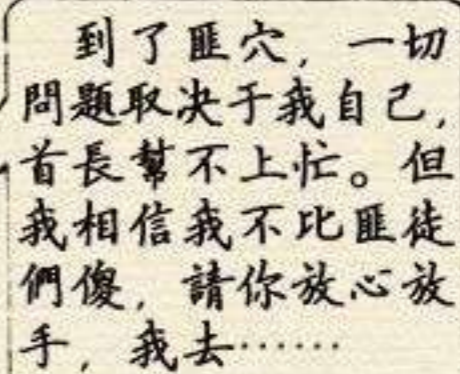 到了匪穴，一切
問題取决于我自己，
首長幫不上忙。但
我相信我不比匪徒
們傻，請你放心放
手，我去……